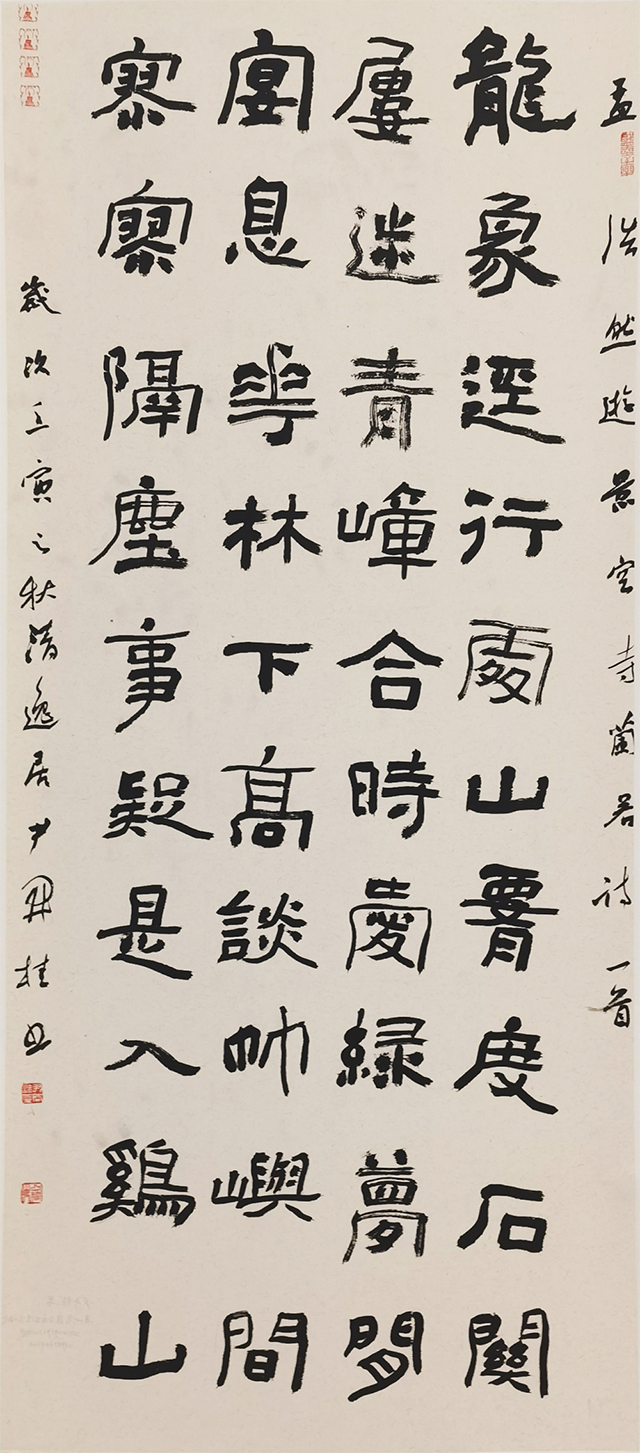 孟浩然遊景空寺蘭若诗一首
龍象逕行處山腰度石關
屢迷青嶂合時愛綠夢閒
宴息華林下高談竹嶼間
寥寥隔塵事疑是入鷄山
歲次壬寅之秋清逸居尹開桂书